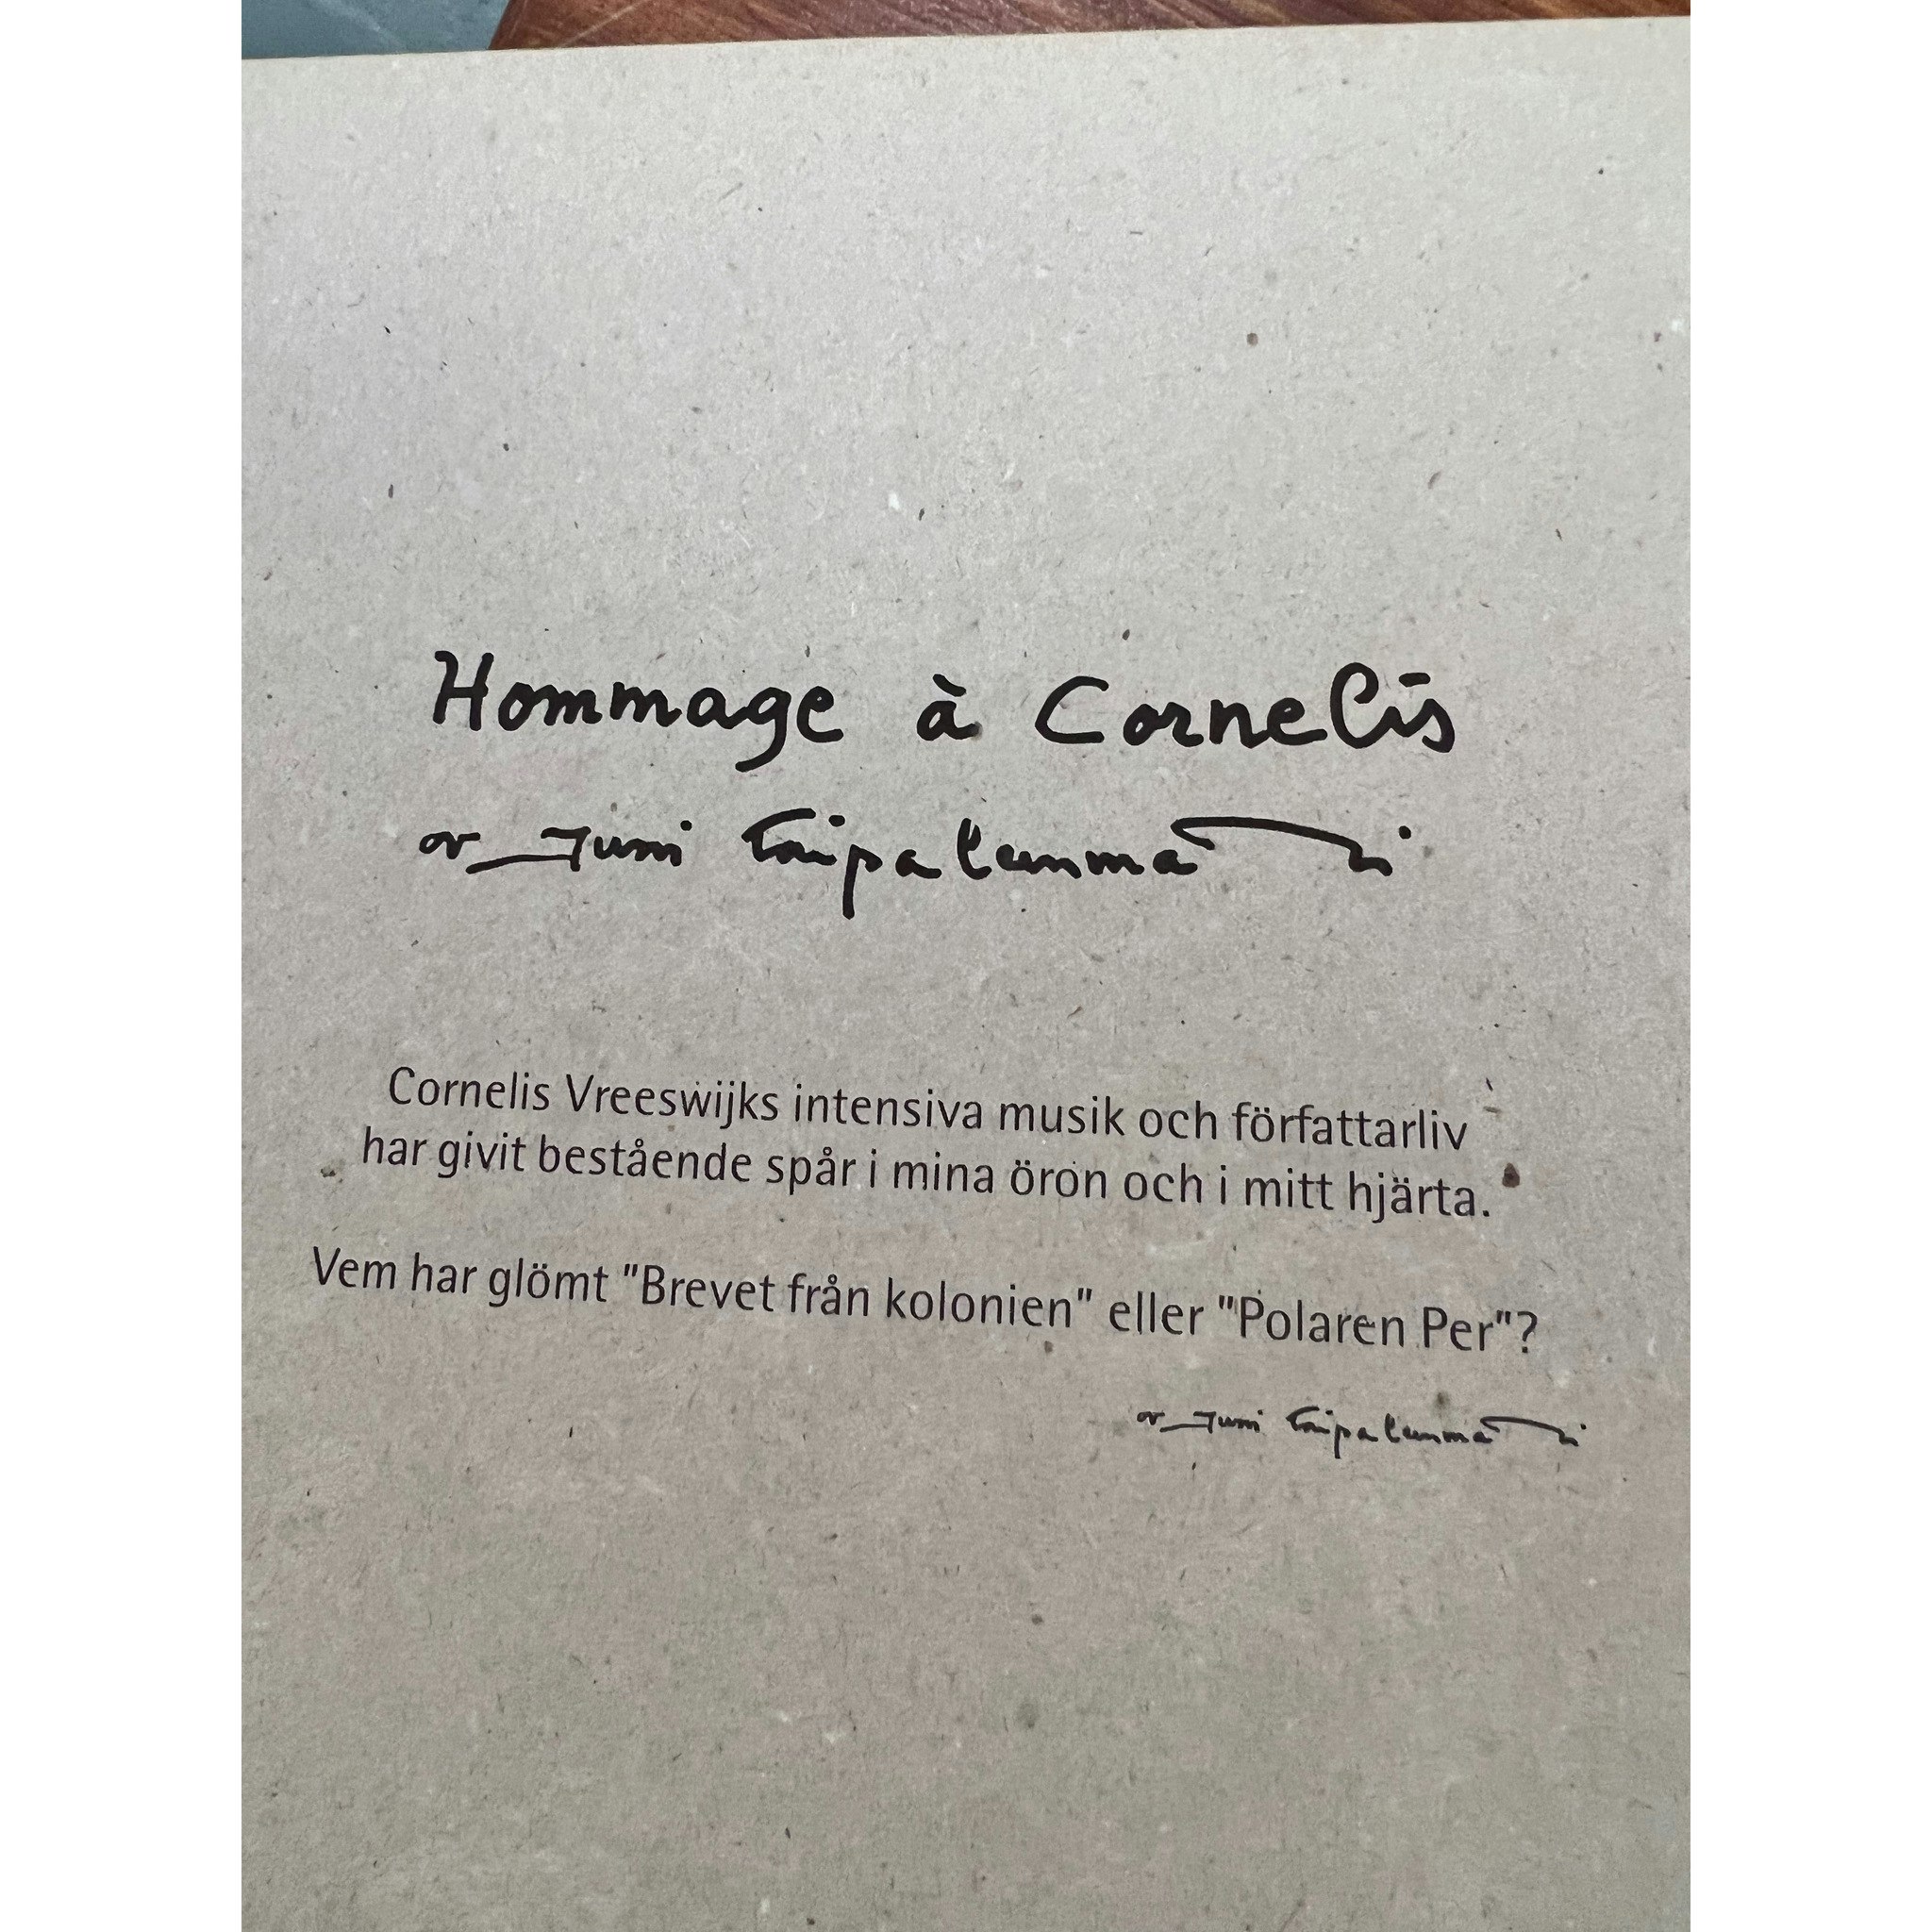 Hommage à Cornelis
av Juni
Cornelis Vreeswijks intensiva musik och författarliv
har givit bestående spår i mina öron och i mitt hjärta.
Vem har glömt "Brevet från kolonien" eller "Polaren Per"?
av Juni